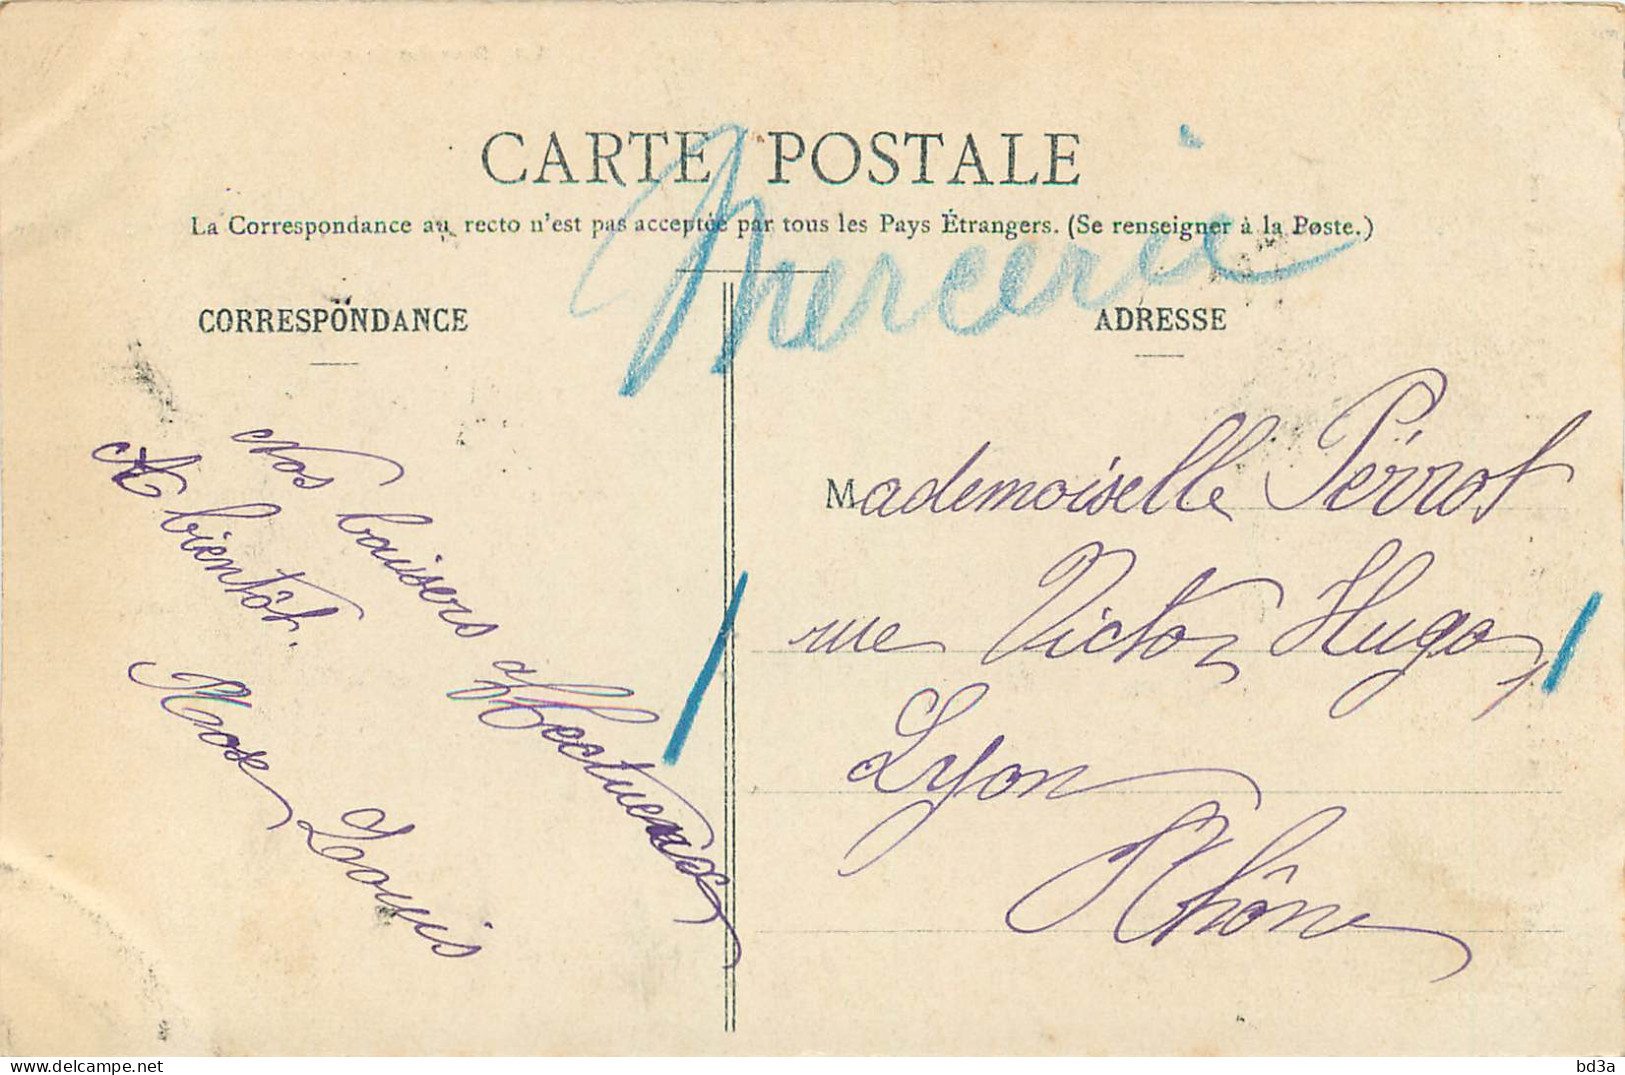 CARTE POSTALE
La Correspondance au recto n'est pas acceptée par tous les Pays Étrangers. (Se renseigner à la Poste.)
Mercerie
CORRESPONDANCE
Nos baisers affectueux
A bientôt.
Louis
ADRESSE
Mademoiselle Pérrot
rue Victor Hugo,
Lyon
Rhône
delcampe.net
bd3a